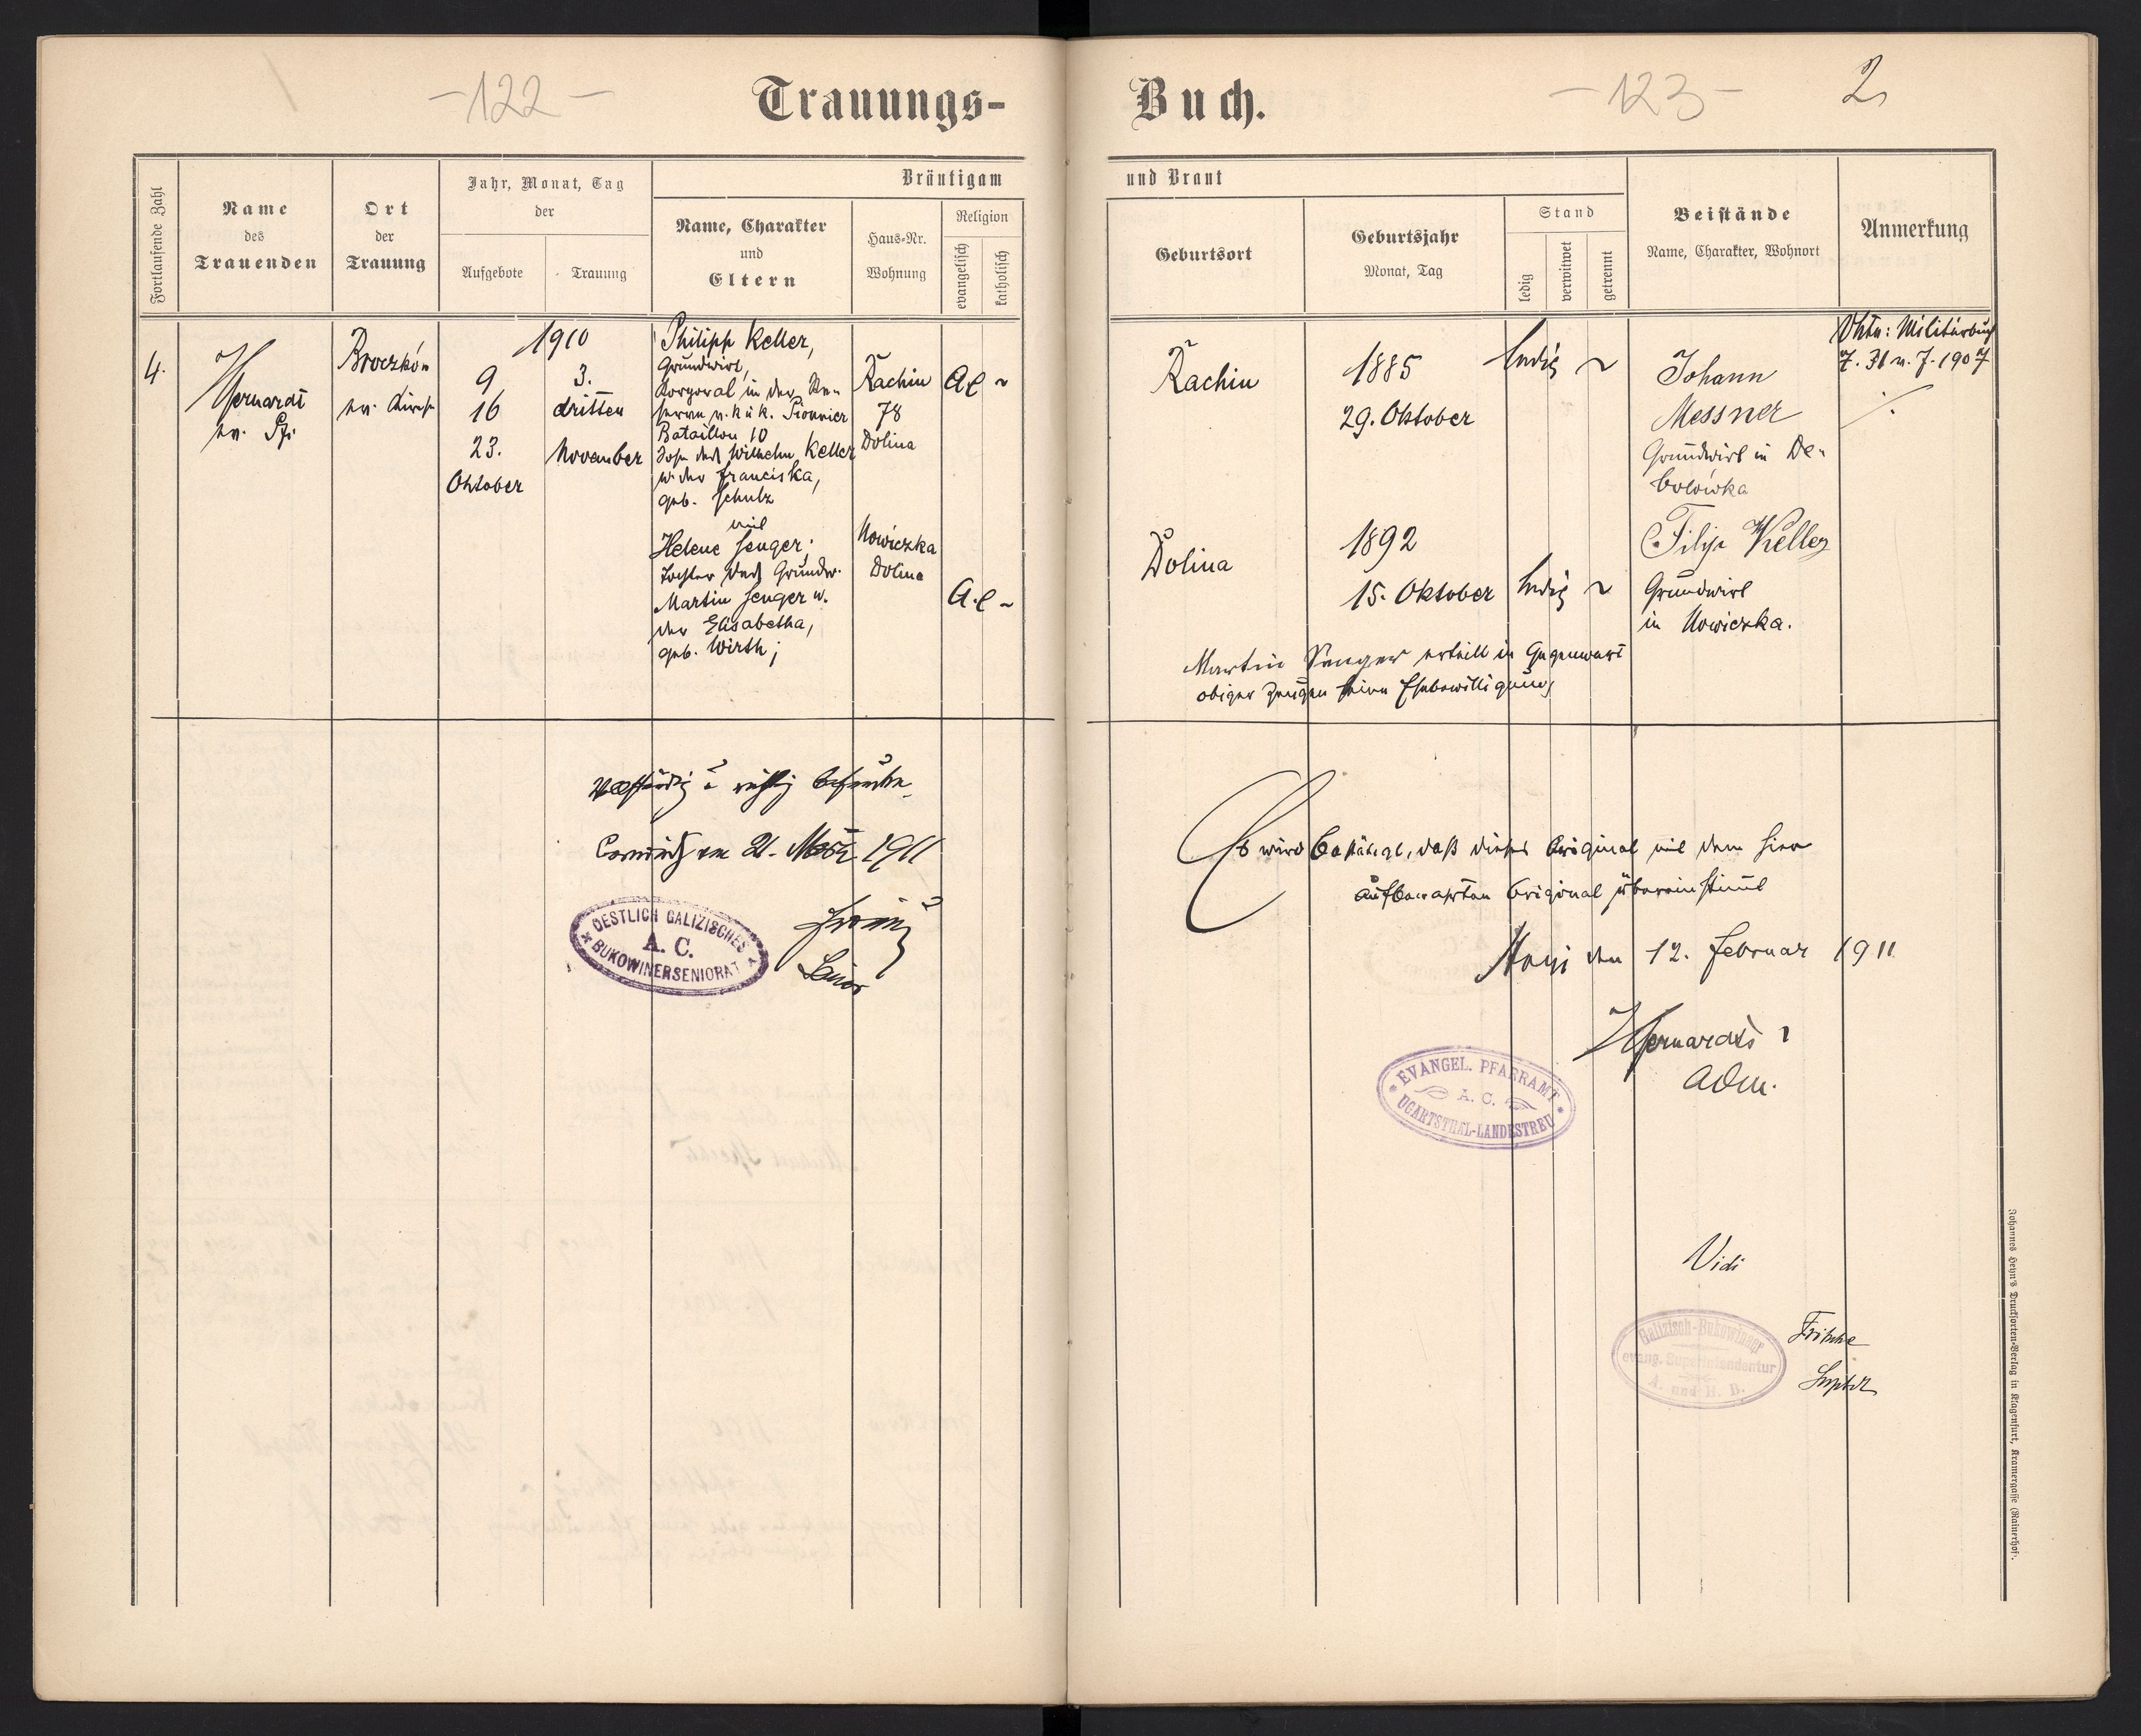 -122-
Trauungs-
Fortlaufende Zahl
Name
des
Trauenden
Ort
der
Trauung
Jahr, Monat, Tag
der
Aufgebote
Trauung
Bräutigam
Name, Charakter
und
Eltern
Haus-Nr.
Wohnung
Religion
evangelisch
katholisch
4.
ev.
Broczków
ev. Kirche
1910
9
16
23.
Oktober
3.
dritten
November
Philipp Keller,
Grundwirt,
Korporal in der Re-
serve k. u. k. Pionnier
Bataillon 10
Sohn des Wilhelm Keller
u. der Franciska,
geb. Schulz
mit
Helene Senger;
Tochter des Grundw.
Martin Senger u.
der Elisabetha,
geb. Wirth;
Rachin
78
Dolina
Nowiczka
Dolina
A.C ~
A.C ~
vollständig u. richtig befunden.
am 21. März 1911
Senior
OESTLICH GALIZISCHES
A. C.
BUKOWINERSENIORAT
-123-
2
Buch.
und Braut
Geburtsort
Geburtsjahr
Monat, Tag
Stand
ledig
verwitwet
getrennt
Beistände
Name, Charakter, Wohnort
Anmerkung
Rachin
1885
29. Oktober
ledig ~
Johann
Messner
Grundwirt in De-
bolówka
Militärbuch
Z. 31 v. J. 1907
Dolina
1892
15. Oktober
ledig ~
Filip Keller
Grundwirt
in Nowiczka.
Martin Senger erteilt in Gegenwart
obiger Zeugen seine Ehebewilligung
Es wird bestätigt, daß dieses Original mit dem hier
aufbewahrten Original übereinstimmt
den 12. Februar 1911
Adm.
EVANGEL. PFARRAMT
A. C.
UGARTSTHAL-LANDESTREU
Vidi
Galizisch-Bukowinaer
evang. Superintendentur
A. und H. B.
Fritsche
Suptdt
Johannes Heyn's Drucksorten-Verlag in Klagenfurt, Kramergasse (Rainerhof).